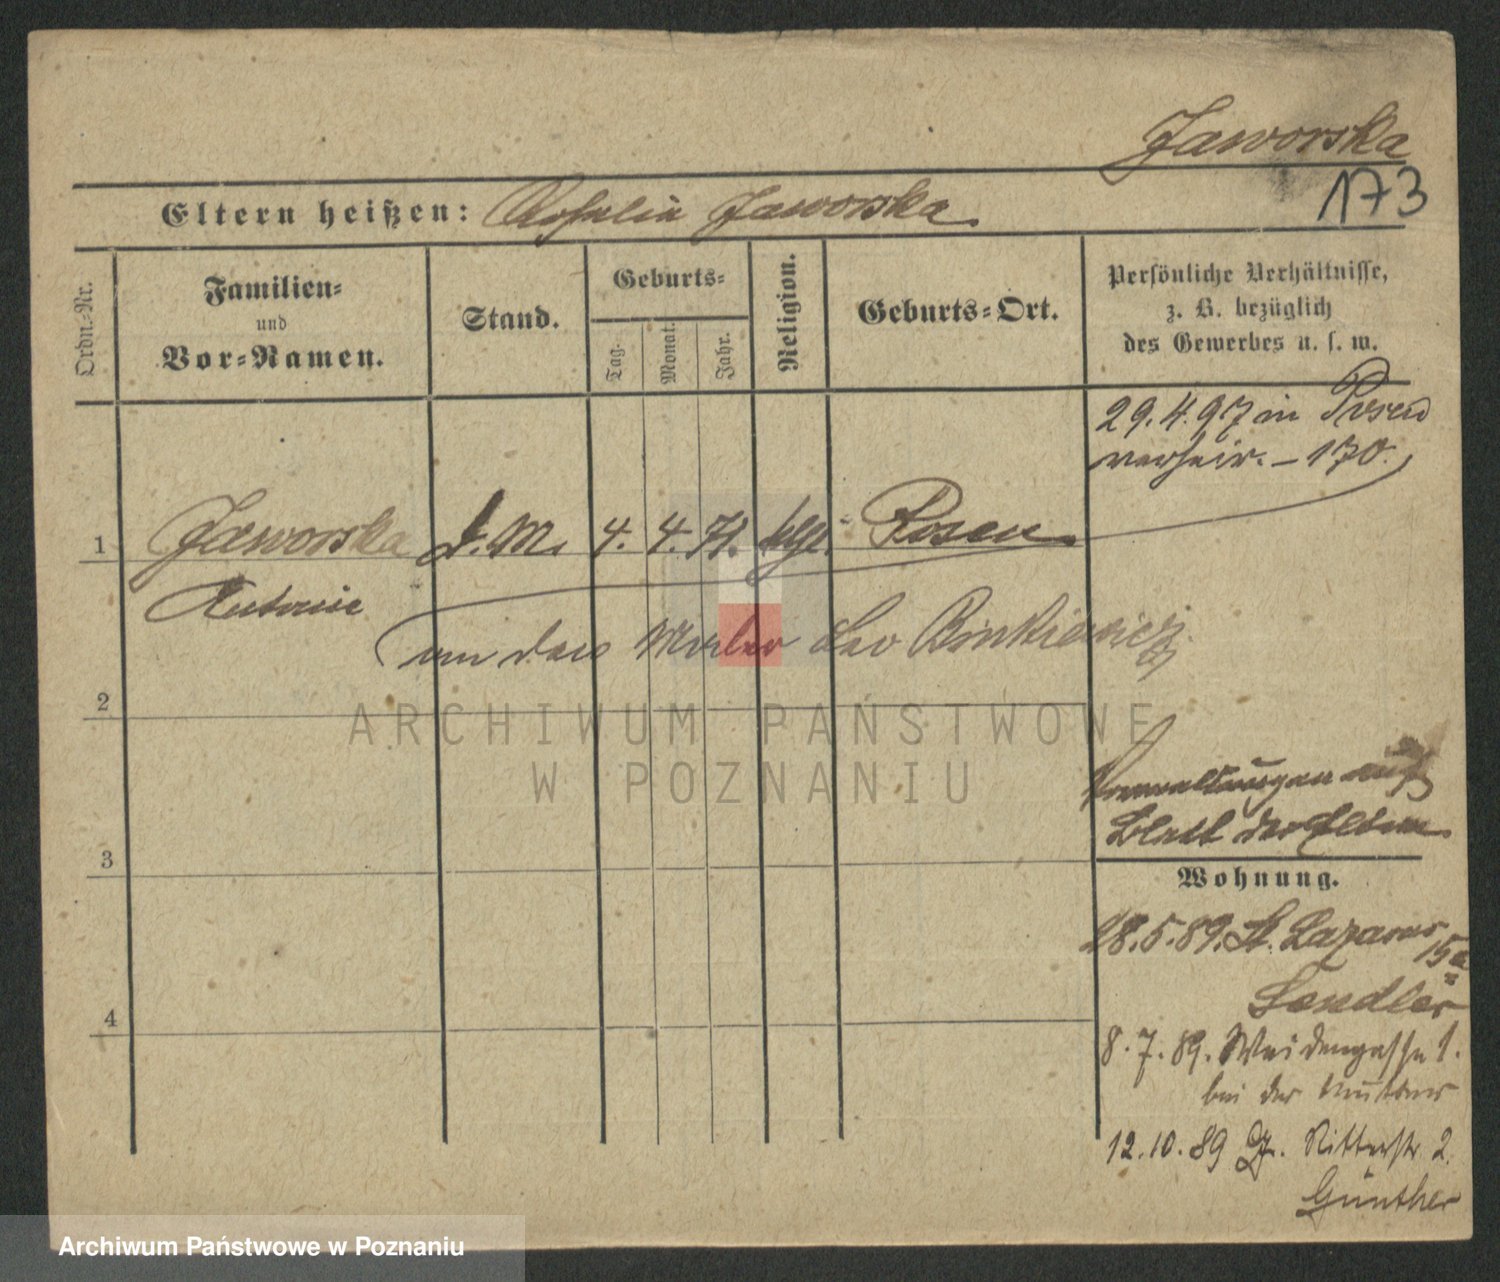 Jaworska
173
Eltern heißen: Rosalie Jaworska
Ordn.-Nr.
Familien-
und
Vor-Namen.
Stand.
Geburts-
Tag.
Monat.
Jahr.
Religion.
Geburts-Ort.
Persönliche Verhältnisse,
z. B. bezüglich
des Gewerbes u. s. w.
29.4.97 in Posen
verheir. – 170.
1 Jaworska d. M. 4. 4. 71. Posen
Antonie
an den Maler Leo Binkiewicz
2
ARCHIWUM PAŃSTWOWE
W POZNANIU
auf
Blatt der Eltern
3
Wohnung.
28.5.89. St. Lazarus 15a
Sandler
4
8.7.89. Weidengasse 1.
bei der Mutter
12.10.89 Ritterstr. 2.
Günther
Archiwum Państwowe w Poznaniu